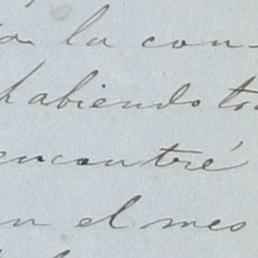 la con-
habiendo
encontré
en el mes